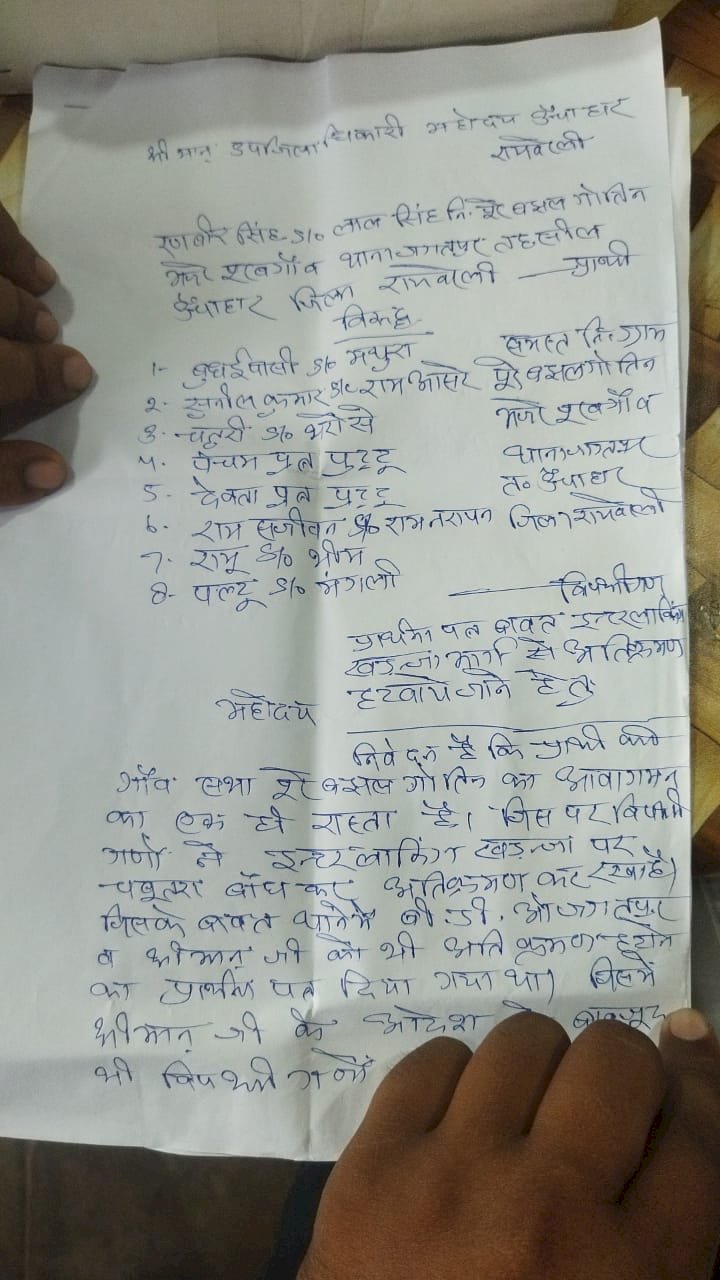 श्रीमान् उपजिलाधिकारी महोदय ऊँचाहार
रायबरेली
रणवीर सिंह S/o लाल सिंह नि. पूरे बझल गोतिन
मजरे थाना जगतपुर तहसील
ऊँचाहार जिला रायबरेली — प्रार्थी
विरुद्ध
1- बुधई पासी S/o मथुरा समस्त नि. ग्राम
2. सुनील कुमार S/o राम आसरे पूरे बझल गोतिन
3. S/o भरोसे मजरे
4. पंचम पुत्र पुद्दू थाना जगतपुर
5. देवता पुत्र पुद्दू त० ऊँचाहार
6. राम सजीवन S/o राम नरायन जिला रायबरेली
7. रामू S/o भीम
8- पल्टू S/o मंगली — विपक्षीगण
प्रार्थना पत्र बावत इन्टरलाकिंग
खड़न्जा मार्ग से अतिक्रमण
हटवाये जाने हेतु
महोदय
निवेदन है कि प्रार्थी की
गाँव सभा पूरे बझल गोतिन का आवागमन
का एक ही रास्ता है। जिस पर विपक्षी
गणों ने इन्टरलाकिंग खड़न्जा पर
चबूतरा बाँध कर अतिक्रमण कर रखा है।
जिसके बावत थाने में बी.डी.ओ जगतपुर
व श्रीमान् जी को भी अतिक्रमण हटाने
का प्रार्थना पत्र दिया गया था। जिसमें
श्रीमान् जी के आदेश के बावजूद
भी विपक्षी गणों